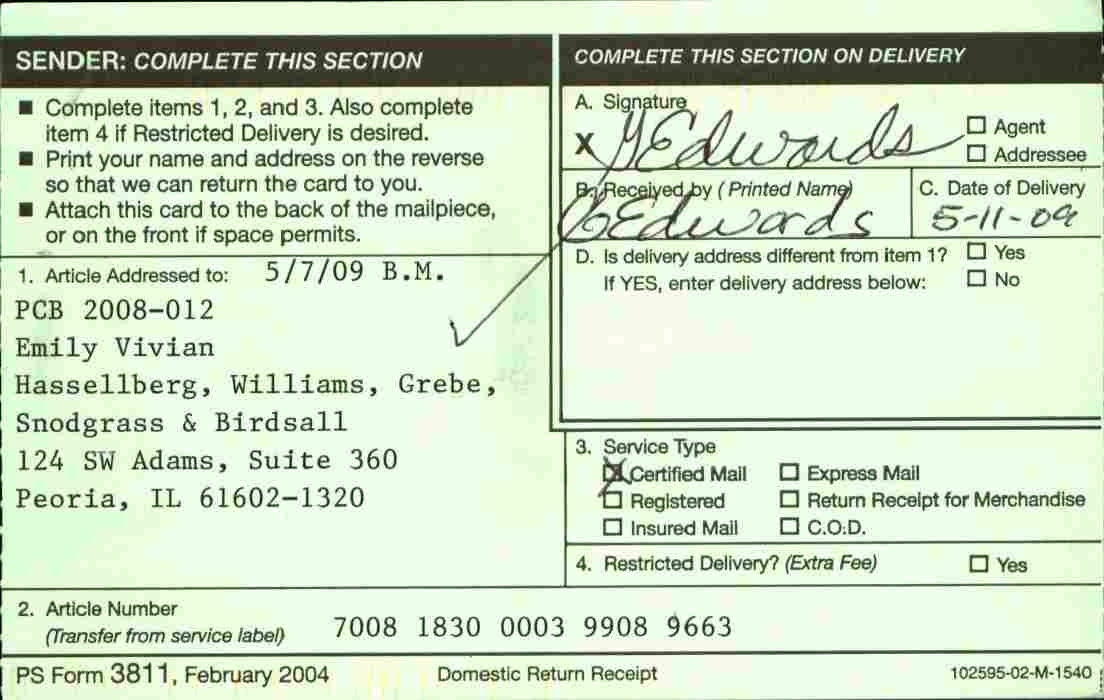 SENDER: COMPLETE THIS SECTION
■ Complete items 1, 2, and 3. Also complete
item 4 if Restricted Delivery is desired.
■ Print your name and address on the reverse
so that we can return the card to you.
■ Attach this card to the back of the mailpiece,
or on the front if space permits.
1. Article Addressed to: 5/7/09 B.M.
PCB 2008-012
Emily Vivian
Hassellberg, Williams, Grebe,
Snodgrass & Birdsall
124 SW Adams, Suite 360
Peoria, IL 61602-1320
COMPLETE THIS SECTION ON DELIVERY
A. Signature
X Edwards
☐ Agent
☐ Addressee
B. Received by (Printed Name)
Edwards
C. Date of Delivery
5-11-09
D. Is delivery address different from item 1? ☐ Yes
If YES, enter delivery address below: ☐ No
3. Service Type
☒ Certified Mail ☐ Express Mail
☐ Registered ☐ Return Receipt for Merchandise
☐ Insured Mail ☐ C.O.D.
4. Restricted Delivery? (Extra Fee) ☐ Yes
2. Article Number
(Transfer from service label) 7008 1830 0003 9908 9663
PS Form 3811, February 2004 Domestic Return Receipt 102595-02-M-1540